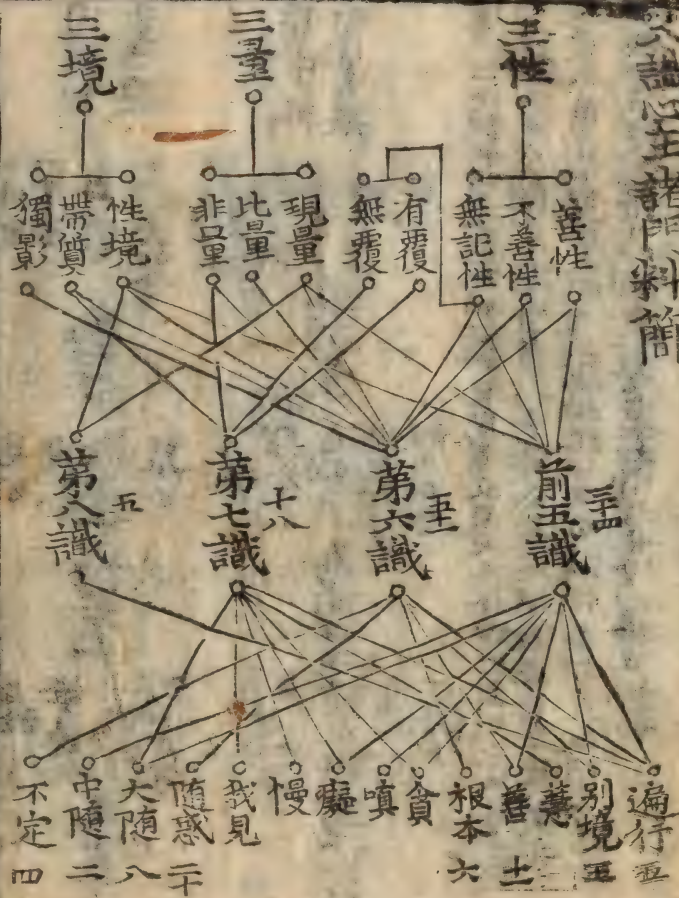 八識心王諸門料簡
三性
三量
三境
善性
不善性
無記性
有覆
無覆
現量
比量
非量
性境
帶質
獨影
前五識
三十四
第六識
五十一
第七識
十八
第八識
五
遍行五
別境五
慧
善十一
根本六
貪
嗔
癡
慢
我見
随惑二十
大随八
中随二
不定四